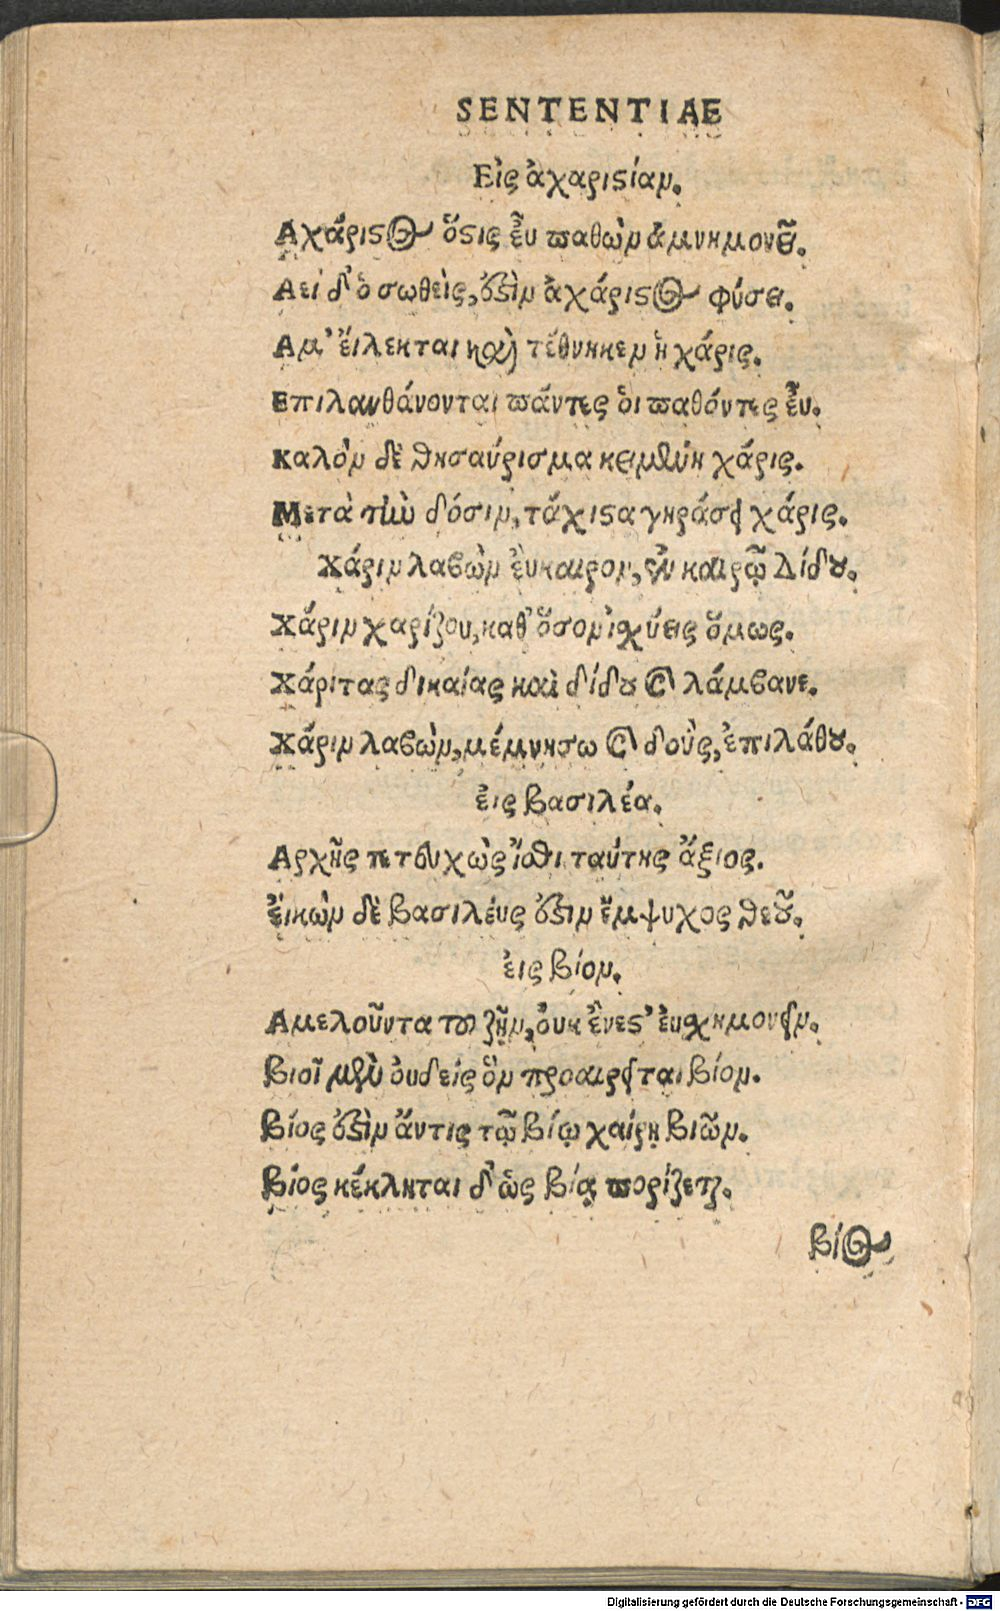 SENTENTIAE
Εἰς ἀχαριστίαν.
Αχάριστος ὅστις εὖ παθὼν ἀμνημονεῖ.
Αεὶ δ' ὁ σωθεὶς, ἐστὶν ἀχάριστος φύσει.
Αμ' ἔιλεκται καὶ τέθνηκεν ἡ χάρις.
Επιλανθάνονται πάντες ὁι παθόντες εὖ.
Καλὸν δὲ θησαύρισμα κειμένη χάρις.
Μετὰ τὴν δόσιν, τάχιστα γηράσκει χάρις.
Χάριν λαβὼν ἐύκαιρον, ἐν καιρῷ Δίδου.
Χάριν χαρίζου, καθ' ὅσον ἰσχύεις ὅμως.
Χάριτας δικαίας καὶ δίδου καὶ λάμβανε.
Χάριν λαβὼν, μέμνησω καὶ δοὺς, ἐπιλάθου.
ἐις βασιλέα.
Αρχῆς τετευχὼς ἴσθι ταύτης ἄξιος.
ἐικὼν δὲ βασιλέυς ἐστιν ἔμψυχος θεοῦ.
ἐις βίον.
Αμελοῦντα τοῦ ζῆν, ὀυκ ἔνεστ' ἐυσχημονεῖν.
Βιοῖ μὲν ὀυδεὶς ὃν προαιρεῖται βίον.
Βίος ἐστὶν ἄντις τῷ βίῳ χαίρῃ βιῶν.
Βίος κέκληται δ' ὡς βίᾳ πορίζεται.
βίος